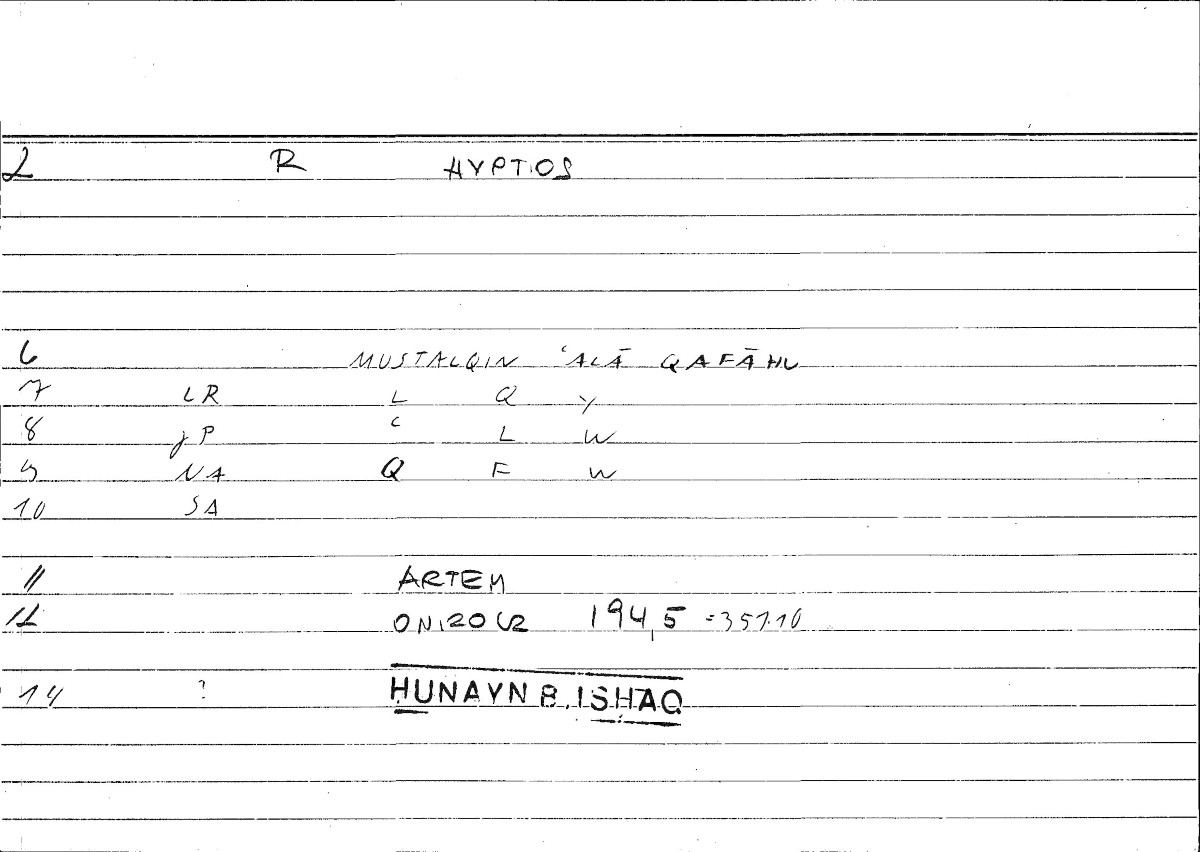 2 R HYPTIOS
6 MUSTALQIN ʿALĀ QAFĀHU
7 LR L Q Y
8 JP ʿ L W
9 NA Q F W
10 SA
11 ARTEM
12 ONIROCR 194,5 =357.10
14 ? ḤUNAYN B. ISḤAQ